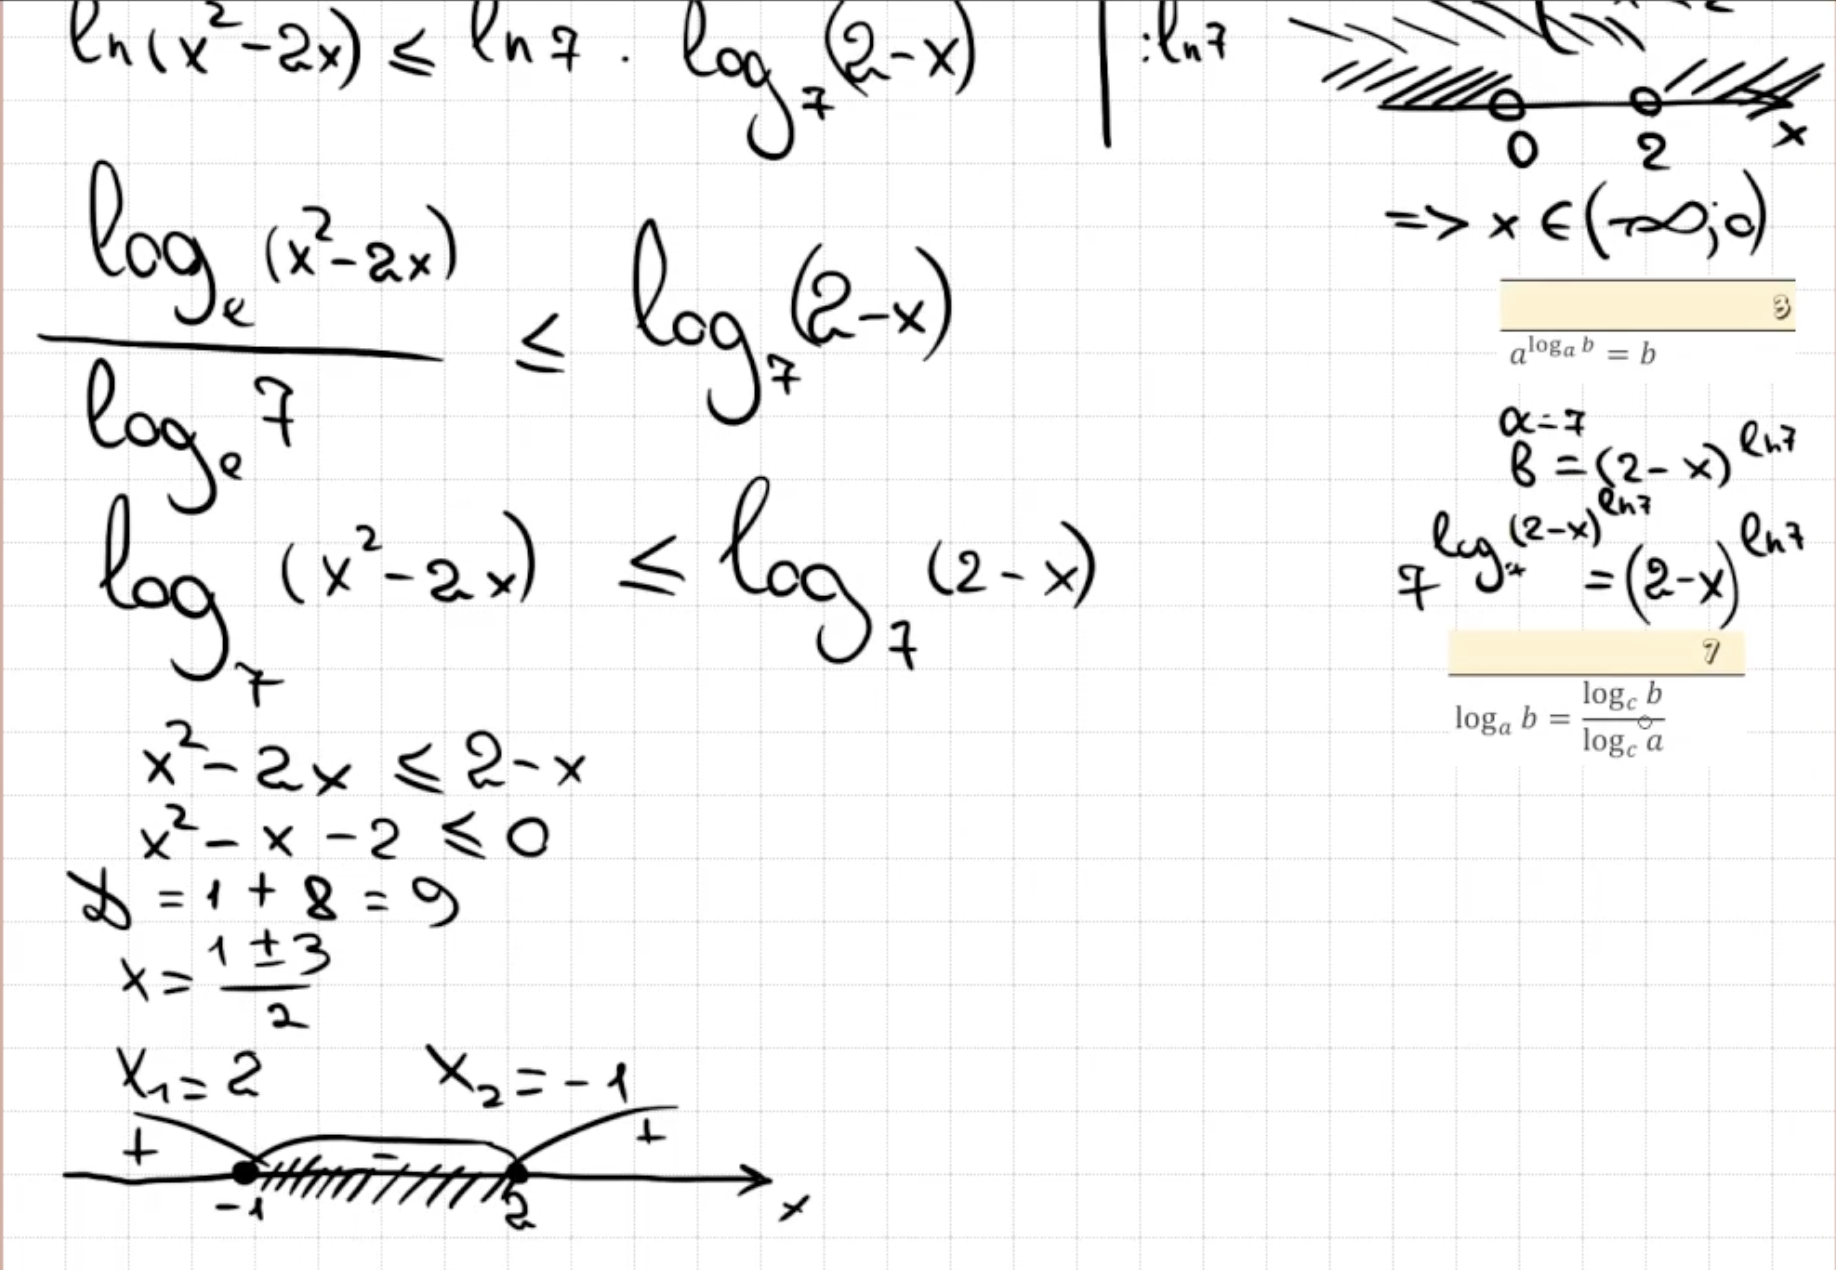 ln(x²-2x) ≤ ln7 · log₇(2-x) | :ln7
logₑ(x²-2x) / logₑ7 ≤ log₇(2-x)
log₇(x²-2x) ≤ log₇(2-x)
x²-2x ≤ 2-x
x²-x-2 ≤ 0
D = 1+8 = 9
x = (1±3)/2
x₁=2 x₂=-1
+ - +
-1 2 x
0 2 x
=> x ∈ (-∞;0)
3
a^(logₐ b) = b
a=7
b=(2-x)^(ln7)
7^(log₇(2-x)^(ln7)) = (2-x)^(ln7)
7
logₐ b = log_c b / log_c a